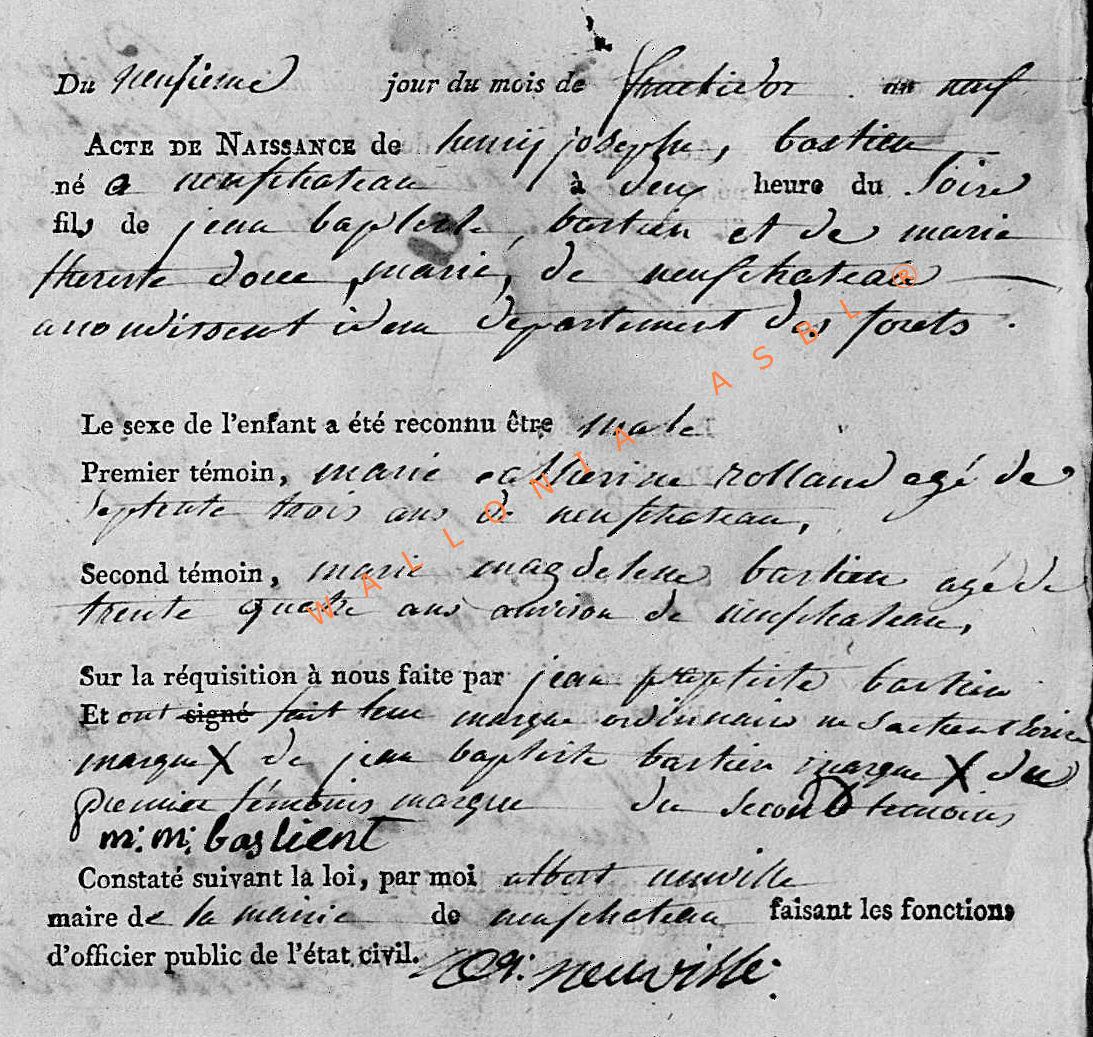 Du neufieme jour du mois de fructidor an neuf
ACTE DE NAISSANCE de henry joseph, bastien
né a neufchateau à deux heure du Soire
fils de jean baptiste, bastien et de marie
therese doue, marié, de neufchateau
arrondissent idem departement des forets.
Le sexe de l'enfant a été reconnu être male
Premier témoin, marie catherine rolland agé de
septente trois ans de neufchateau,
Second témoin, marie magdelene bastien agé de
trente quatre ans de neufchateau,
Sur la réquisition à nous faite par jean baptiste bastien
Et ont signé fait leur marque ordinnaire ne Sachent Ecrire
marque X de jean baptiste bastien marque X du
premier témoins marque du Second temoins
m: m: bastient
Constaté suivant la loi, par moi albert neuville
maire de la mairie de neufchateau faisant les fonctions
d'officier public de l'état civil. A: neuville.
WALLONIA ASBL ®